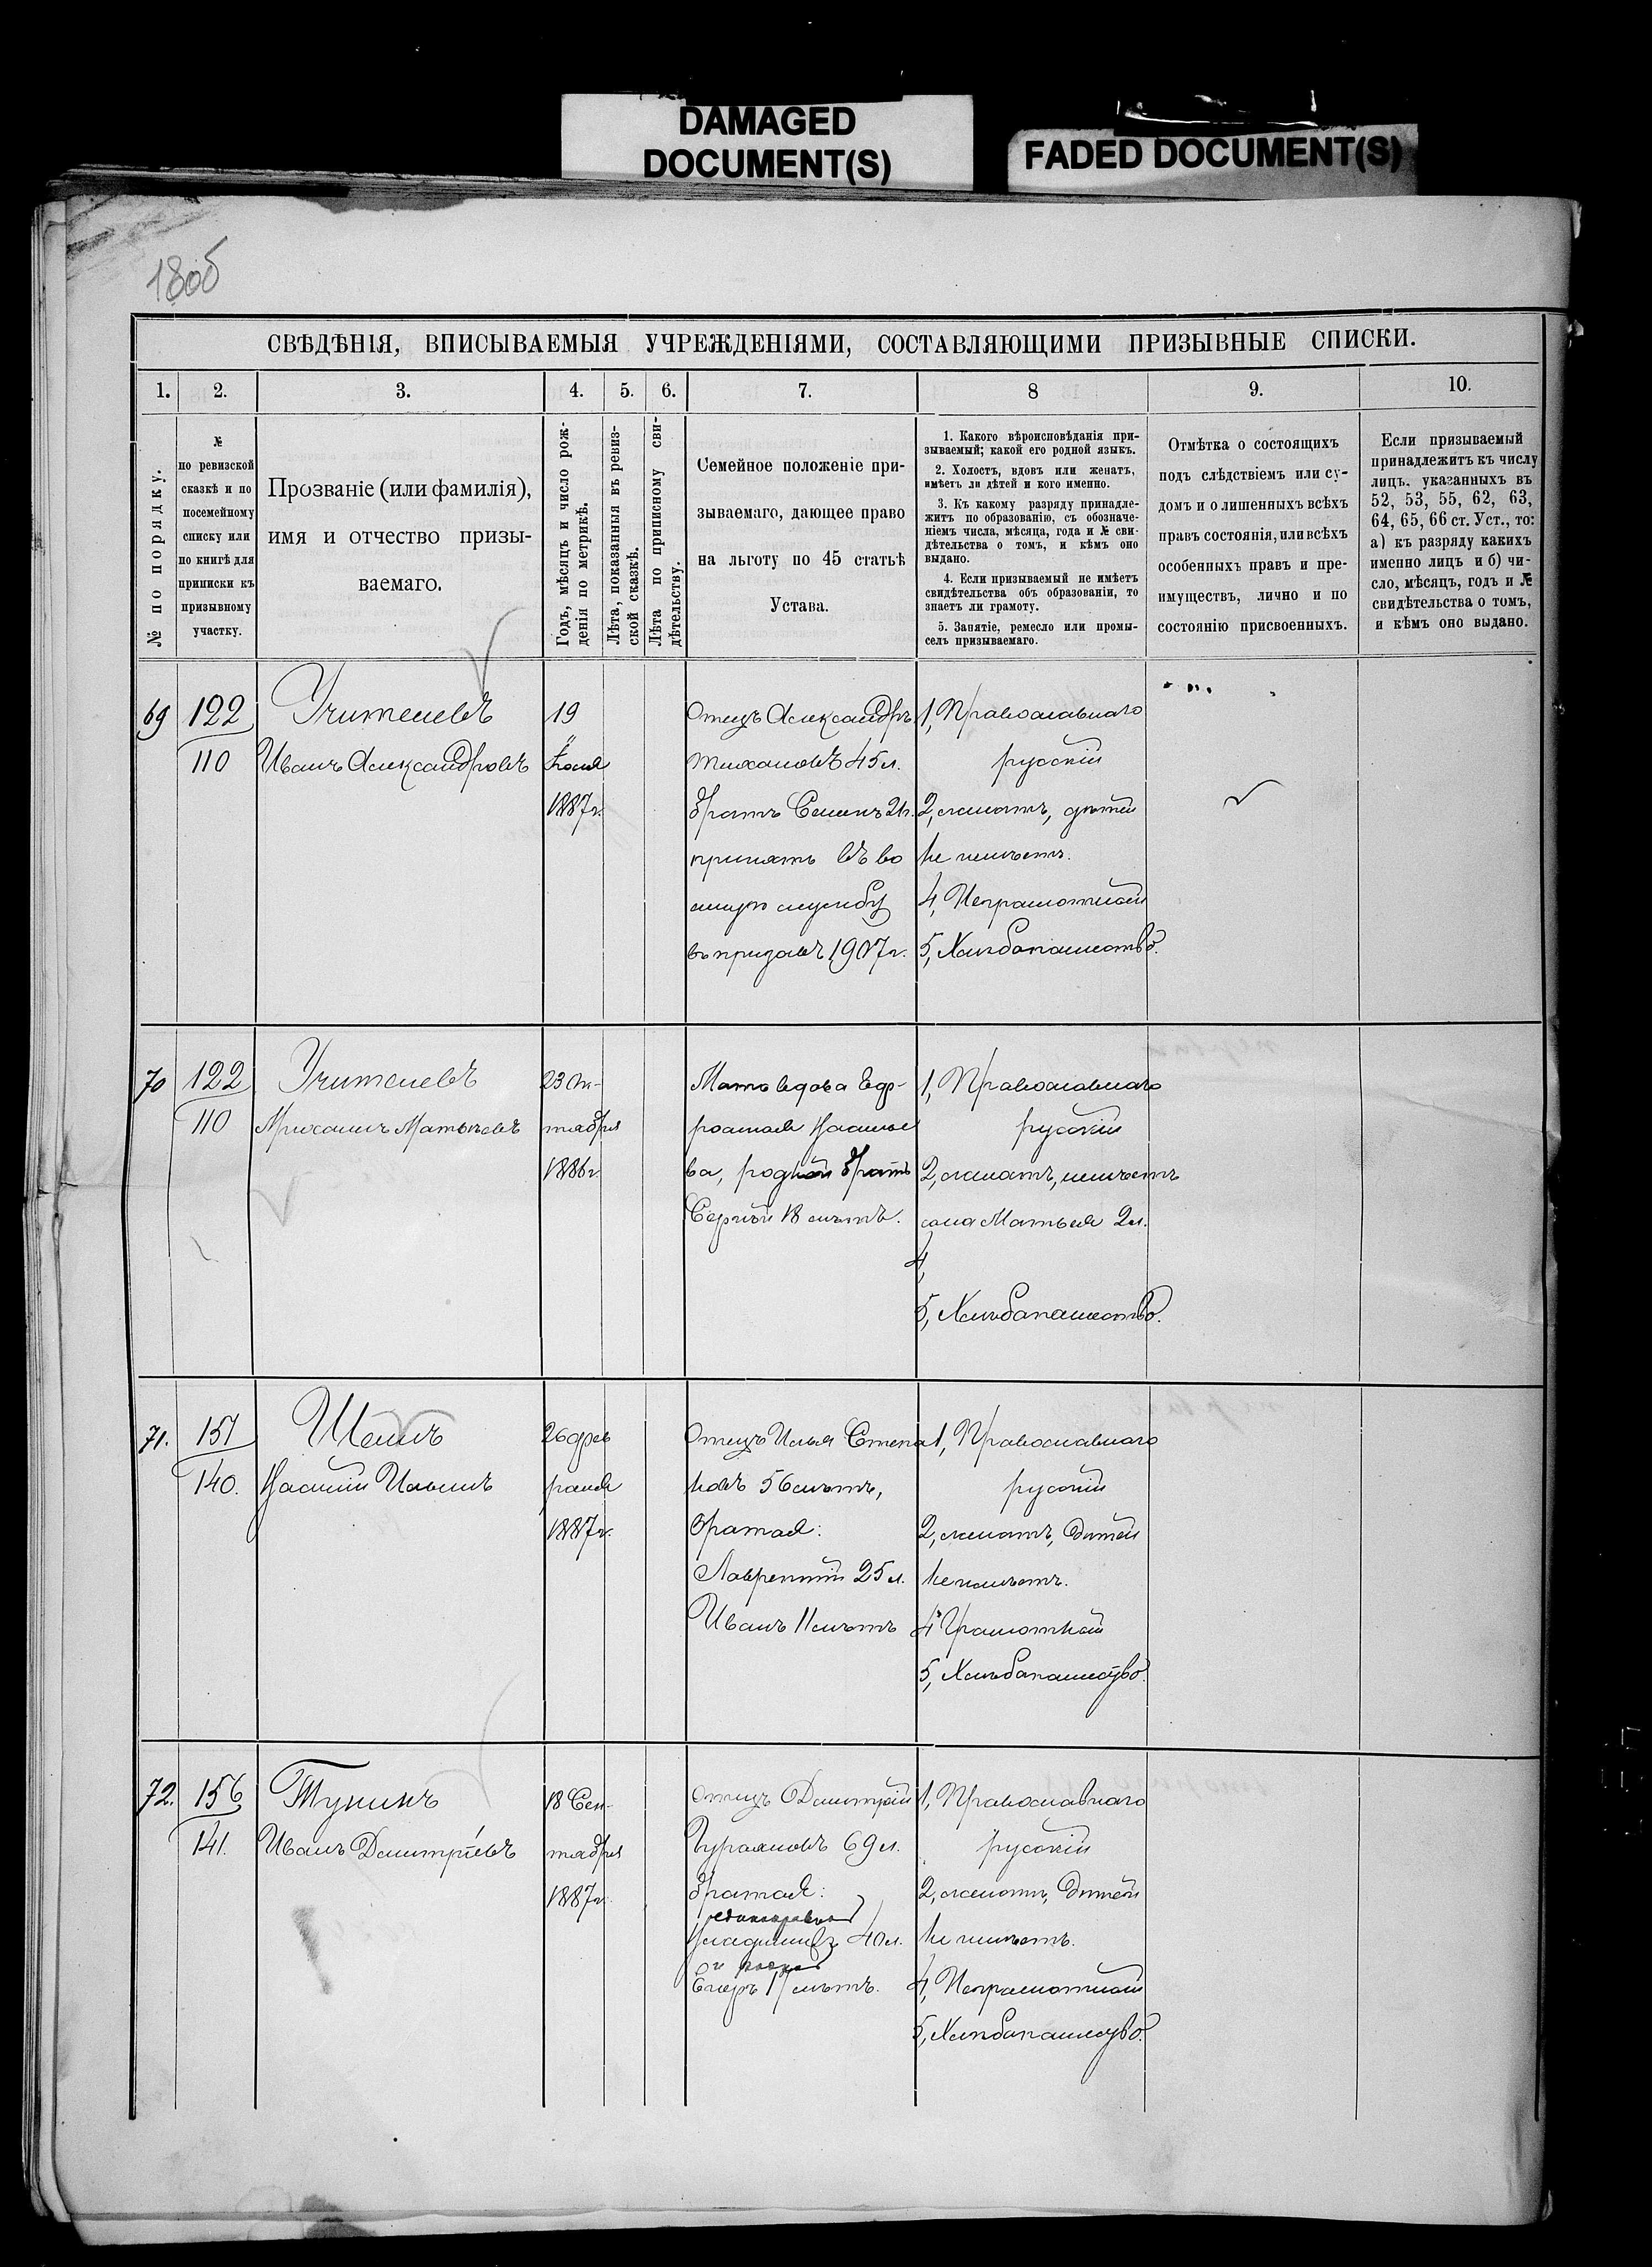 DAMAGED
DOCUMENT(S)
FADED DOCUMENT(S)
180об
СВѢДѢНІЯ, ВПИСЫВАЕМЫЯ УЧРЕЖДЕНІЯМИ, СОСТАВЛЯЮЩИМИ ПРИЗЫВНЫЕ СПИСКИ.
1.
2.
3.
4.
5.
6.
7.
8
9.
10.
№ по порядку.
№
по ревизской
сказкѣ и по
посемейному
списку или
по книгѣ для
приписки къ
призывному
участку.
Прозваніе (или фамилія),
имя и отчество призы-
ваемаго.
Годъ, мѣсяцъ и число рож-
денія по метрикѣ.
Лѣта, показанныя въ ревиз-
ской сказкѣ.
Лѣта по приписному сви-
дѣтельству.
Семейное положеніе при-
зываемаго, дающее право
на льготу по 45 статьѣ
Устава.
1. Какого вѣроисповѣданія при-
зываемый; какой его родной языкъ.
2. Холостъ, вдовъ или женатъ,
имѣетъ ли дѣтей и кого именно.
3. Къ какому разряду принадле-
житъ по образованію, съ обозначе-
ніемъ числа, мѣсяца, года и № сви-
дѣтельства о томъ, и кѣмъ оно
выдано.
4. Если призываемый не имѣетъ
свидѣтельства объ образованіи, то
знаетъ ли грамоту.
5. Занятіе, ремесло или промы-
селъ призываемаго.
Отмѣтка о состоящихъ
подъ слѣдствіемъ или су-
домъ и о лишенныхъ всѣхъ
правъ состоянія, или всѣхъ
особенныхъ правъ и пре-
имуществъ, лично и по
состоянію присвоенныхъ.
Если призываемый
принадлежитъ къ числу
лицъ, указанныхъ въ
52, 53, 55, 62, 63,
64, 65, 66 ст. Уст., то:
а) къ разряду какихъ
именно лицъ и б) чи-
сло, мѣсяцъ, годъ и №
свидѣтельства о томъ,
и кѣмъ оно выдано.
69
122
110
Учителевъ
Иванъ Александровъ
19
1887г.
Отецъ Александръ
Тихановъ 45л.
братъ Семенъ 21г.
принятъ въ во
енную службу
въ призывъ 1907г.
1, Православнаго
русскій
2, женатъ, дѣтей
не имѣетъ.
4, Неграмотный
5, Хлѣбопашество.
70
122
110
Учителевъ
Михаилъ Матвѣевъ
23 Ок-
тября
1886г.
Мать вдова Ев-
ва, родной братъ
Сергѣй 18 лѣтъ.
1, Православнаго
русскій
2, женатъ, имѣетъ
сына Матвѣя 2л.
4,
5, Хлѣбопашество.
71.
151
140.
Шеинъ
Василій Ильинъ
26 фев
раля
1887г.
Отецъ Илья Степа
новъ 56 лѣтъ,
братья:
Лаврентій 25л.
Иванъ 11 лѣтъ
1, Православнаго
русскій
2, женатъ, дѣтей
не имѣетъ.
4, Грамотный
5, Хлѣбопашество.
72.
156
141.
Тупинъ
Иванъ Дмитріевъ
18 Сен-
тября
1887г.
Отецъ Дмитрій
69л.
братья:
Владиміръ 40л.
и родной
Егоръ 17 лѣтъ.
1, Православнаго
русскій
2, женатъ, дѣтей
не имѣетъ.
4, Неграмотный
5, Хлѣбопашество.